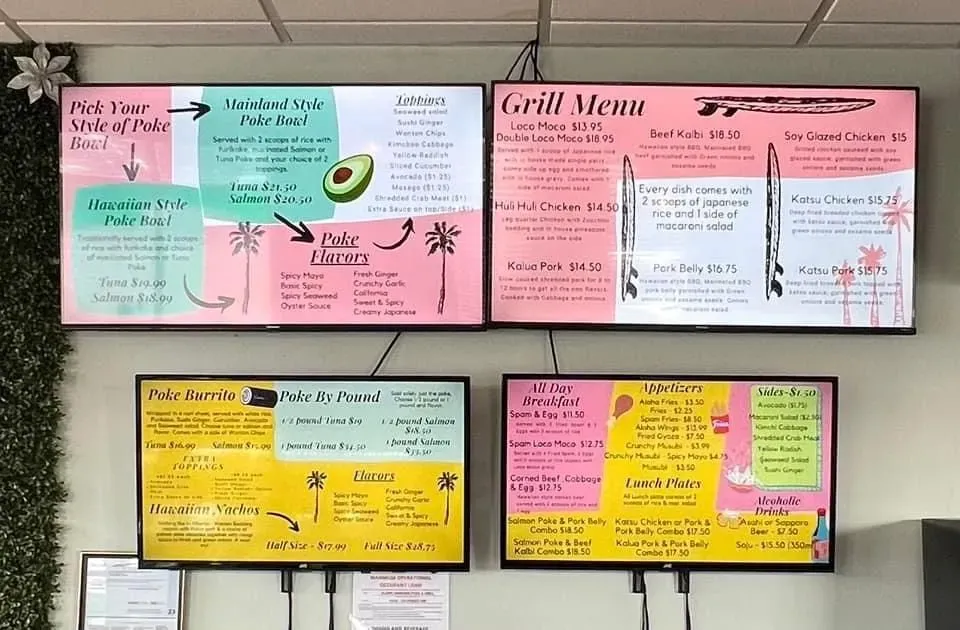 Pick Your
Style of Poke
Bowl
Hawaiian Style
Poke Bowl
Traditionally served with 2 scoops
of rice with furikake and choice
of marinated Salmon or Tuna
Poke
Tuna $19.99
Salmon $18.99
Mainland Style
Poke Bowl
Served with 2 scoops of rice with
furikake, marinated Salmon or
Tuna Poke and your choice of 2
toppings.
Tuna $21.50
Salmon $20.50
Toppings
Seaweed salad
Sushi Ginger
Wonton Chips
Kimchee Cabbage
Yellow Raddish
Sliced Cucumber
Avocado ($1.25)
Masago ($1.25)
Shredded Crab Meat ($1)
Extra Sauce on top/Side ($1)
Poke
Flavors
Spicy Mayo
Basic Spicy
Spicy Seaweed
Oyster Sauce
Fresh Ginger
Crunchy Garlic
California
Sweet & Spicy
Creamy Japanese
Grill Menu
Loco Moco $13.95
Double Loco Moco $18.95
Huli Huli Chicken $14.50
Kalua Pork $14.50
Slow cooked shredded pork for 8 to
12 hours to get all the
Cooked with Cabbage and onions
Beef Kalbi $18.50
Hawaiian style BBQ, Marinated BBQ
beef garnished with Green onions
and sesame seeds
Every dish comes with
2 scoops of japanese
rice and 1 side of
macaroni salad
Pork Belly $16.75
Hawaiian style BBQ, Marinated BBQ
pork belly garnished with Green
onions and sesame seeds
Soy Glazed Chicken $15
Grilled chicken sauced with soy
glazed sauce, garnished with green
onions and sesame seeds
Katsu Chicken $15.75
Deep fried breaded chicken
katsu sauce, garnished
green onions and sesame seeds
Katsu Pork $15.75
Deep fried breaded pork topped with
katsu sauce, garnished with green
onions and sesame seeds
Poke Burrito
Wrapped in a nori sheet, served with white rice,
Furikake, Sushi Ginger, Cucumber, Avocado
and Seaweed salad. Choose tuna or salmon and
flavor. Comes with a side of Wonton Chips.
Tuna $16.99
Salmon $15.99
EXTRA
TOPPINGS
Hawaiian Nachos
Half Size - $17.99
Full Size $28.75
Poke By Pound
Sold solely just the poke,
Choose 1/2 pound or 1
pound and flavor.
1/2 pound Tuna $19
1/2 pound Salmon
$18.50
1 pound Tuna $34.50
1 pound Salmon
$33.50
Flavors
Spicy Mayo
Basic Spicy
Spicy Seaweed
Oyster Sauce
Fresh Ginger
Crunchy Garlic
California
Sweet & Spicy
Creamy Japanese
All Day
Breakfast
Spam & Egg $11.50
Spam Loco Moco $12.75
Corned Beef ,Cabbage
& Egg $12.75
Salmon Poke & Pork Belly
Combo $18.50
Salmon Poke & Beef
Kalbi Combo $18.50
Appetizers
Aloha Fries - $3.50
Fries - $2.25
Spam Fries - $8.50
Aloha Wings - $13.99
Fried Gyoza - $7.50
Crunchy Musubi - $3.99
Crunchy Musubi - Spicy Mayo $4.75
Musubi $3.50
Lunch Plates
All Lunch plate consist of 2
scoops of rice & mac salad
Katsu Chicken or Pork &
Pork Belly Combo $17.50
Kalua Pork & Pork Belly
Combo $17.50
Sides-$1.50
Avocado ($1.75)
Macaroni Salad
Kimchi Cabbage
Shredded Crab Meat
Yellow Radish
Seaweed Salad
Sushi Ginger
Alcoholic
Drinks
Asahi or Sapporo
Beer - $7.50
Soju - $15.50 (350ml
JVC
MAXIMUM OPERATIONAL
OCCUPANT LOAD